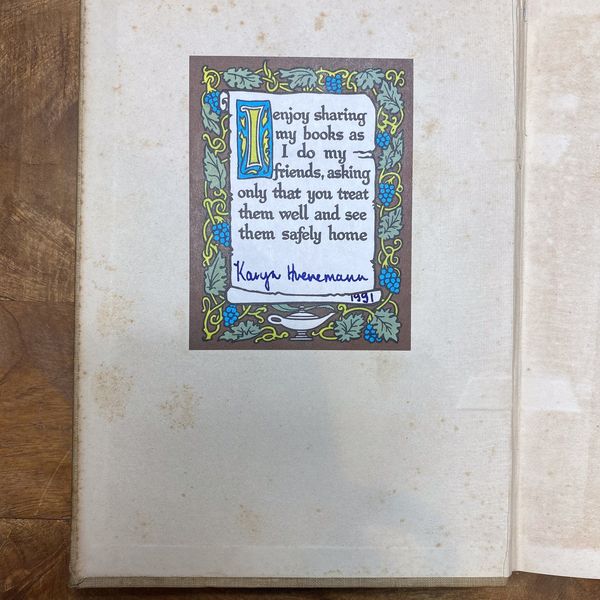 I enjoy sharing
my books as
I do my
friends, asking
only that you treat
them well and see
them safely home
Karyn Huenemann
1991